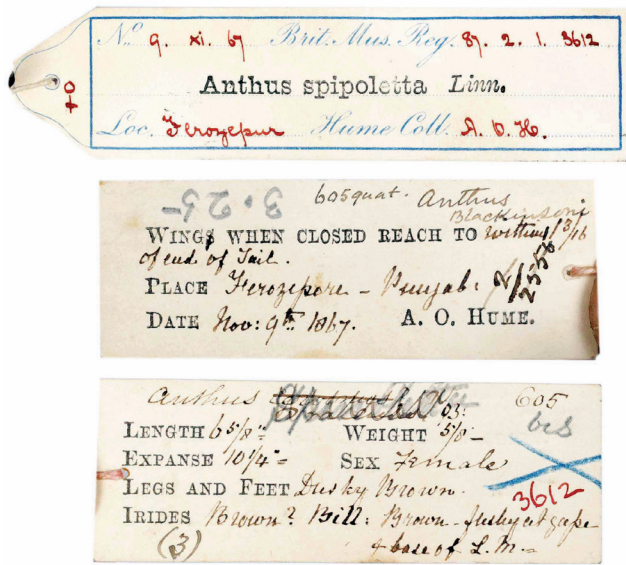 No. 9. xi. 67 Brit. Mus. Reg. 87. 2. 1. 3612
♀ Anthus spipoletta Linn.
Loc. Ferozepur Hume Coll. A. O. H.
3.25 605quat. Anthus
Blackinsoni
WINGS WHEN CLOSED REACH TO within 1 3/16
of end of Tail.
PLACE Ferozepore - Punjab:
DATE Nov: 9th 1867. A. O. HUME.
2558
Anthus 605
bis
LENGTH 6 5/8" WEIGHT 5/8 oz:
EXPANSE 10 1/4" SEX Female
LEGS AND FEET Dusky Brown.
3612
IRIDES Brown? Bill: Brown - fleshy at gape
(3) & base of L. M. -